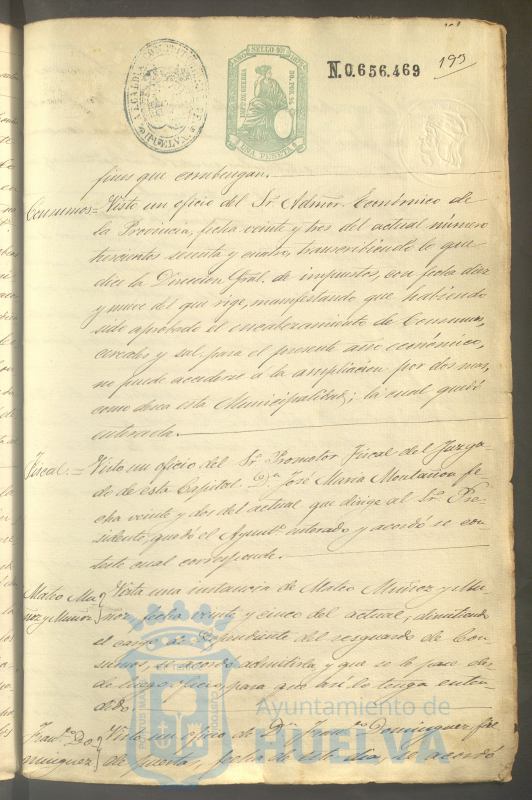 N.0.656.469
193
ALCALDIA CONSTITUCIONAL
HUELVA
AÑO SELLO 10º 1876
IMPTO. GUERRA
UNA PESETA
fines que combengan.
Consumos = Visto un oficio del Sr. Admor. Económico de
la Provincia, fecha veinte y tres del actual número
trescientos setenta y cuatro, transcribiendo lo que
dice la Direccion Gral. de impuestos, con fecha diez
y nueve del que rige, manifestando que habiendo
sido aprobado el encabezamiento de Consumos,
cereales y sal para el presente año económico,
no puede accederse a la ampliacion por dos mas,
como desea esta Municipalidad; la cual quedó
enterada.
Fiscal. = Visto un oficio del Sr. Promotor Fiscal del Juzga-
do de esta Capital Dn. José Maria Montañon fe-
cha veinte y dos del actual que dirige al Sr. Pre-
sidente, quedó el Ayunto. enterado y acordó se con-
teste cual corresponde.
Mateo Mu- Vista una instancia de Mateo Muñoz y Mu-
ñoz y Munoz noz, fecha veinte y cinco del actual, dimitiendo
el cargo de Dependiente del resguardo de Con-
sumos, se acordó admitirla, y que se le pase des-
de luego oficio, para que asi lo tenga enten-
dido.
Franco. Do- Visto un oficio de Dn. Franco. Dominguez, fiel
minguez de puerta, fecha de este dia, se acordó
Ayuntamiento de
HUELVA